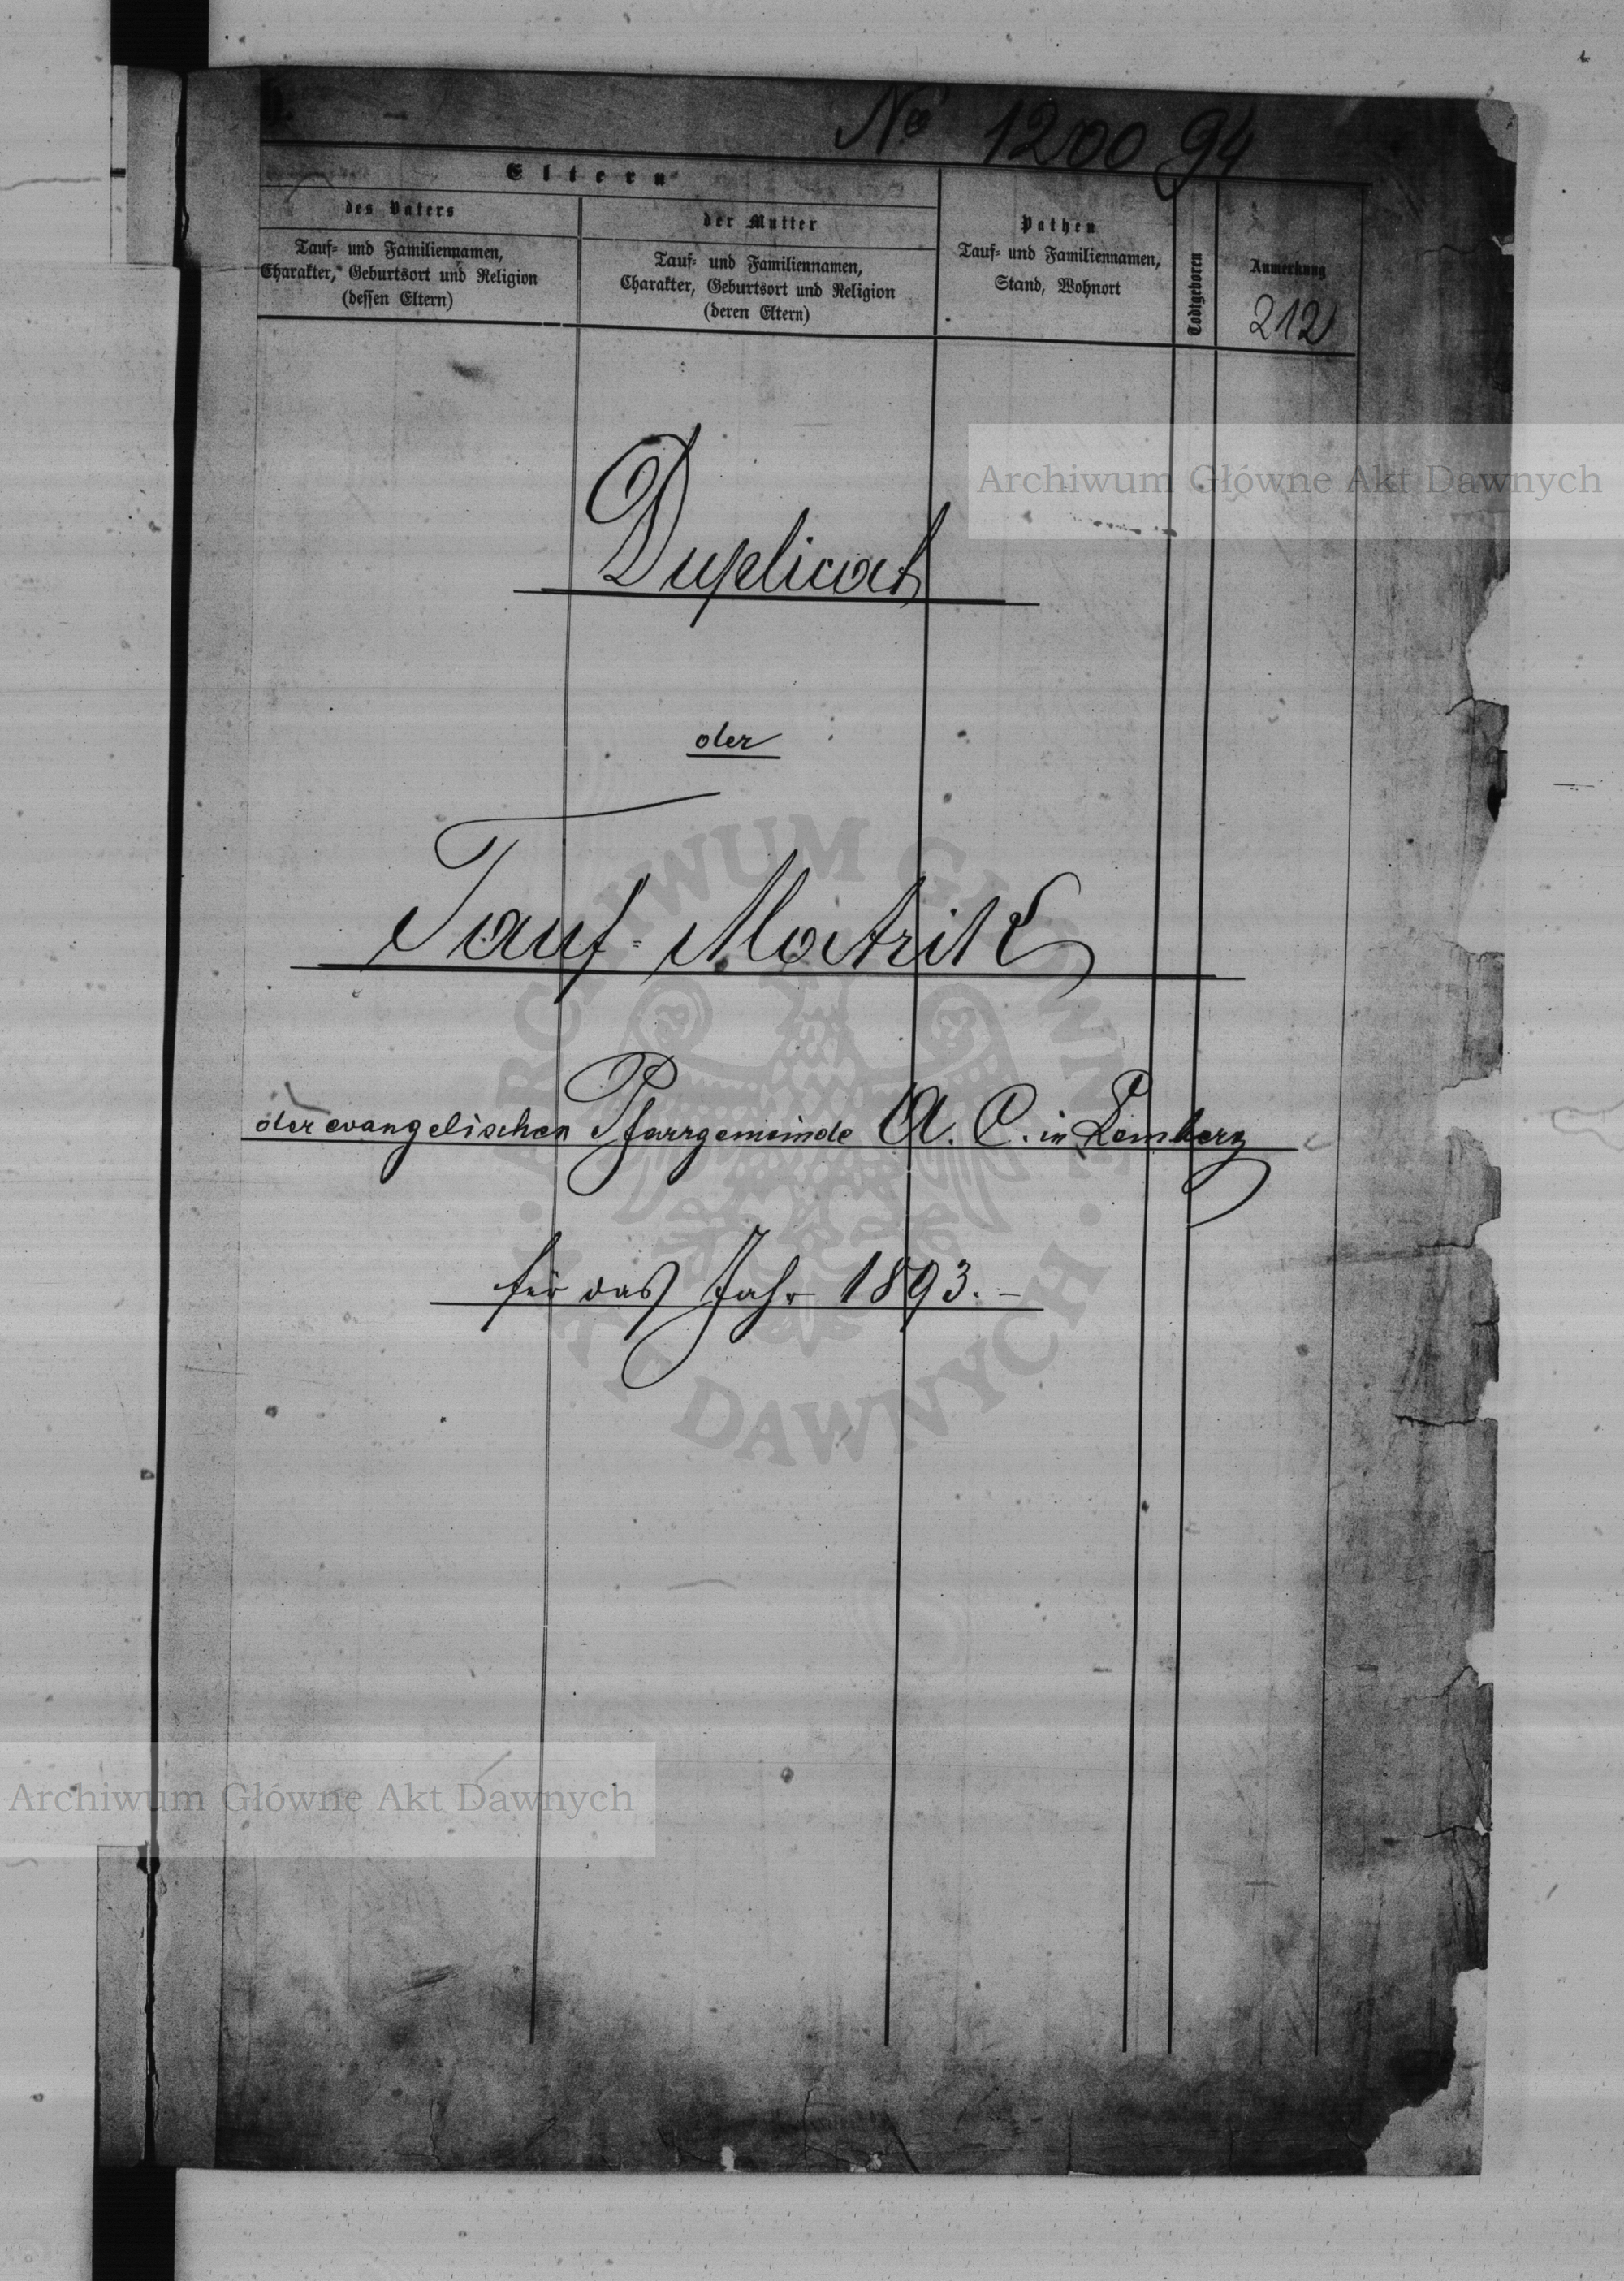 No 1200 94
Eltern
des Vaters
der Mutter
Pathen
Tauf= und Familiennamen,
Charakter, Geburtsort und Religion
(dessen Eltern)
Tauf= und Familiennamen,
Charakter, Geburtsort und Religion
(deren Eltern)
Tauf= und Familiennamen,
Stand, Wohnort
Todtgeboren
Anmerkung
212
Duplicat
der
Tauf=Matrik
der evangelischen Pfarrgemeinde A. C. in Lemberg
für das Jahr 1893. –
Archiwum Główne Akt Dawnych
ARCHIWUM GŁÓWNE AKT DAWNYCH
Archiwum Główne Akt Dawnych